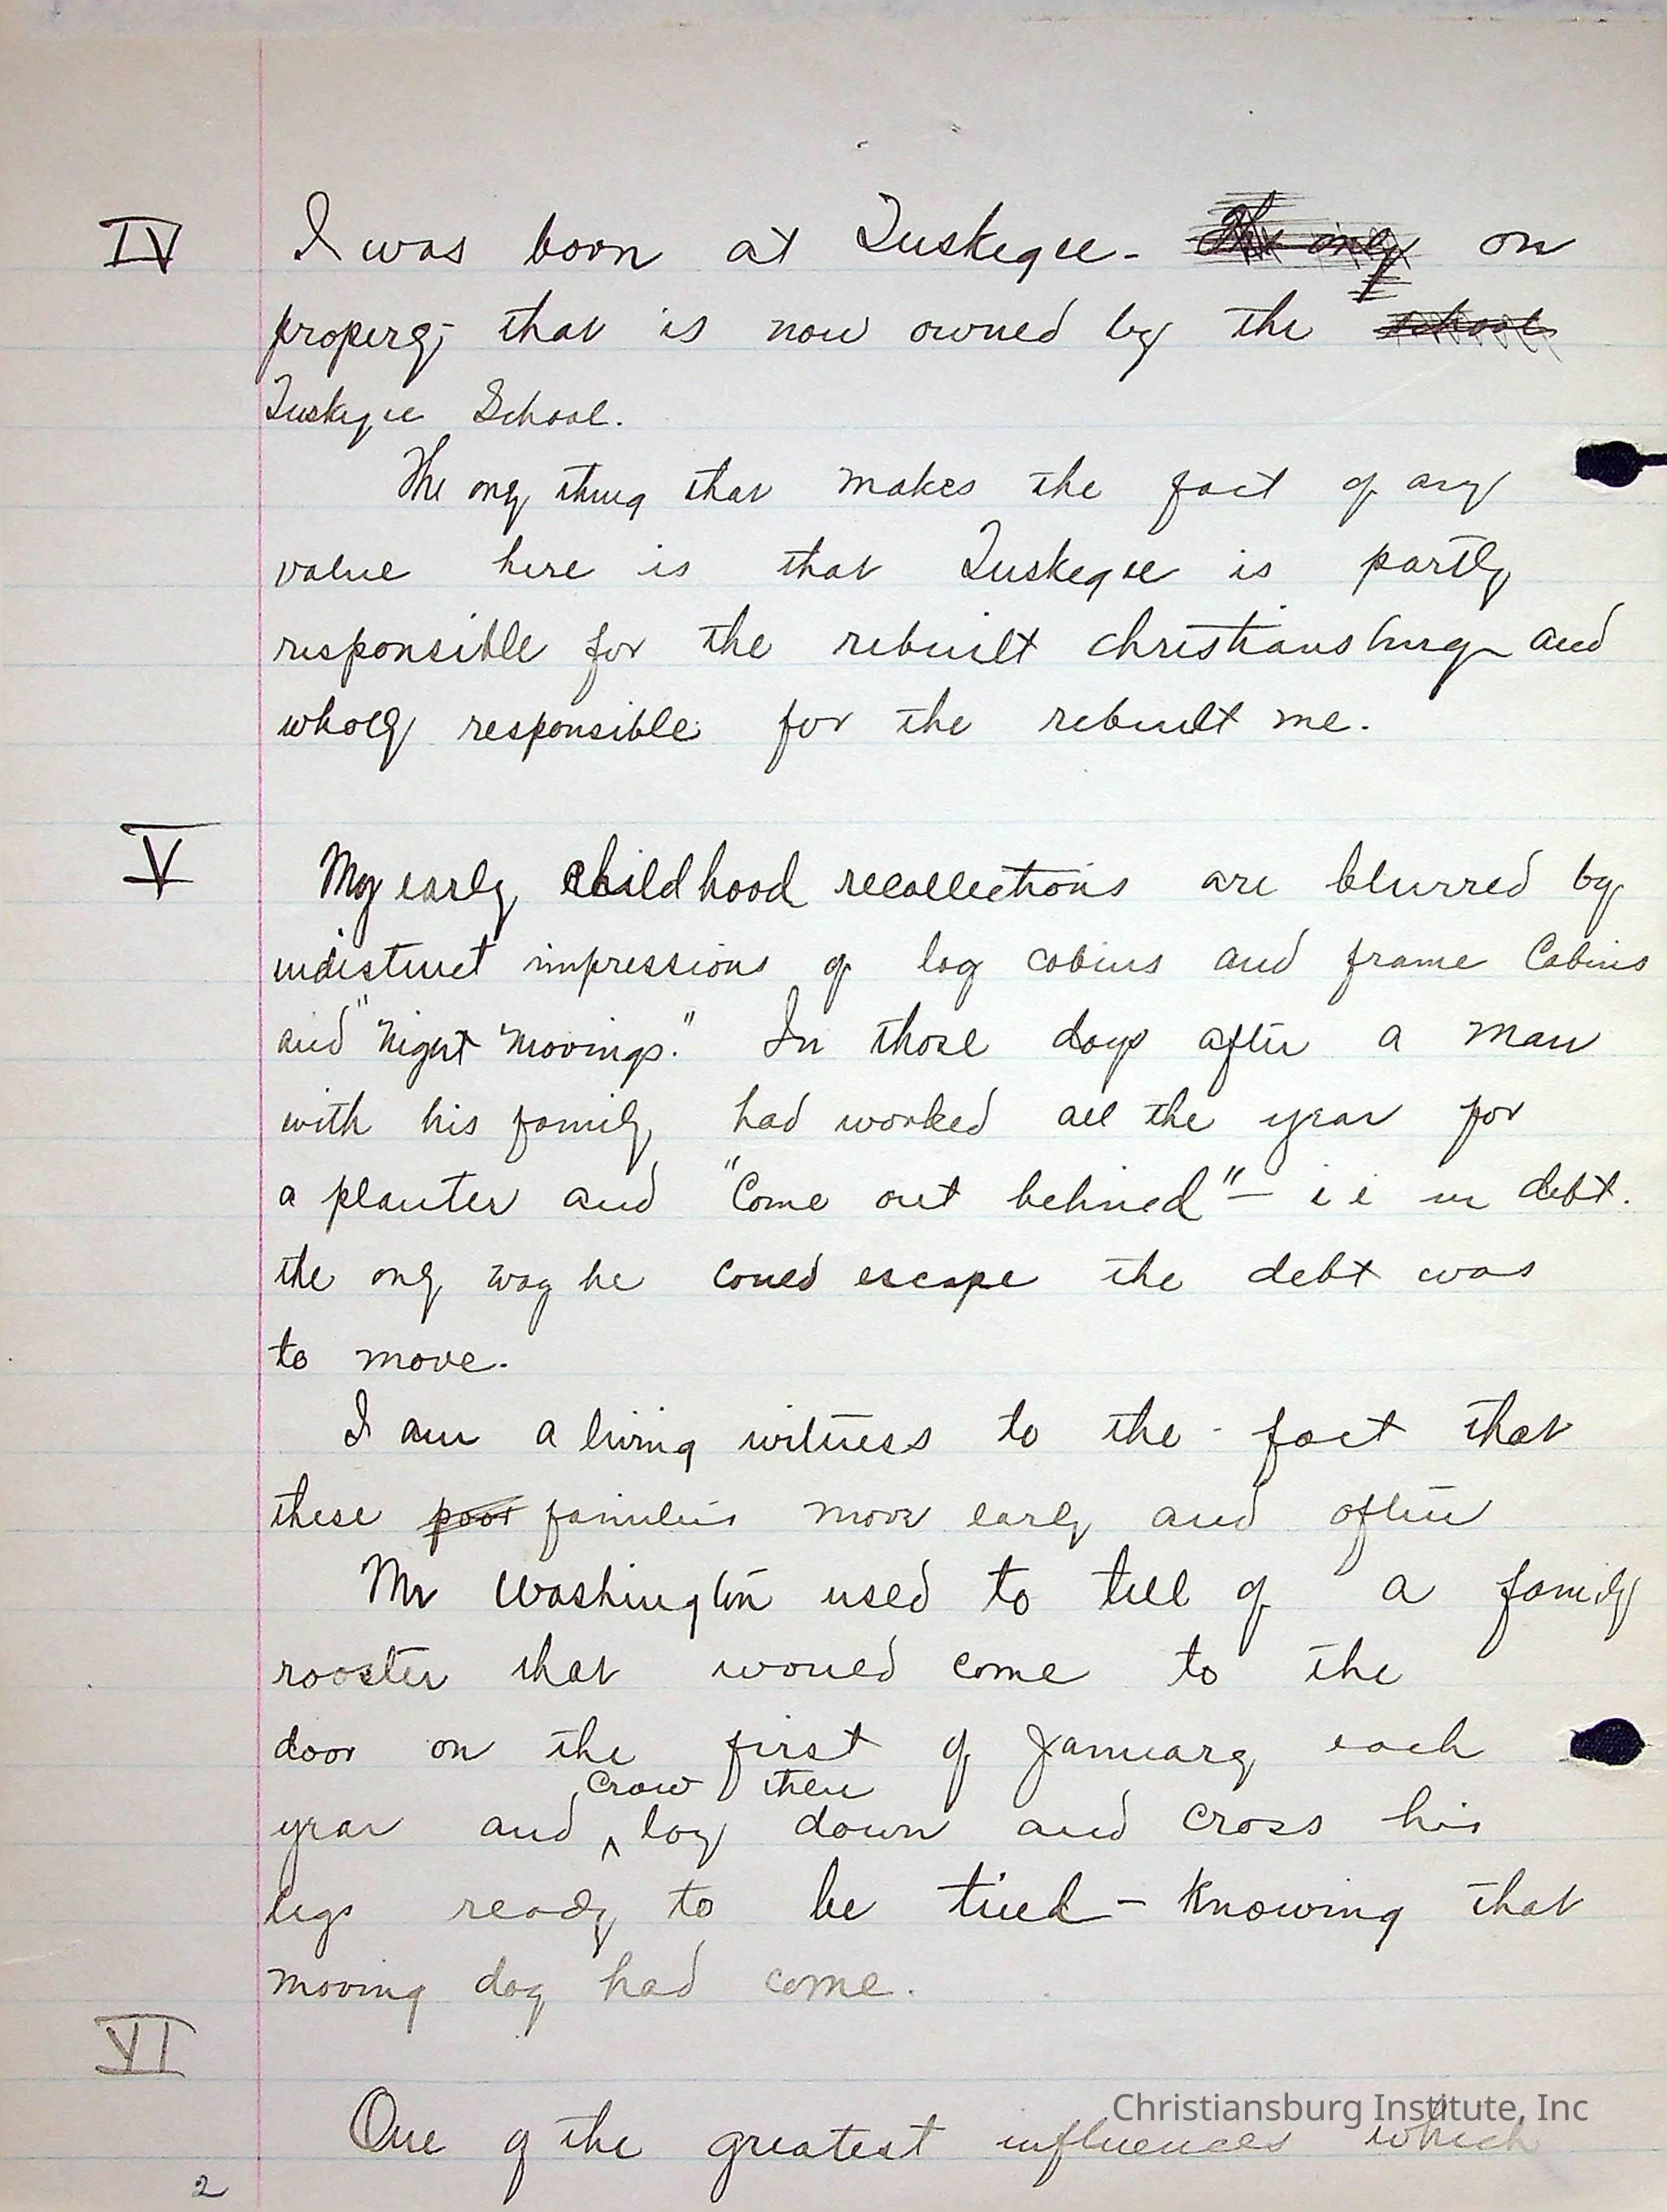 IV I was born at Tuskegee - The only on
property that is now owned by the school
Tuskegee School.
The only thing that makes the fact of any
value here is that Tuskegee is partly
responsible for the rebuilt Christiansburg and
wholly responsible for the rebuilt me.
V My early childhood recollections are blurred by
indistinct impressions of log cabins and frame Cabins
and "Night Movings." In those days after a man
with his family had worked all the year for
a planter and "Come out behined" - i e in debt.
the only way he could escape the debt was
to move.
I am a living witness to the fact that
these poor families move early and often
Mr Washington used to tell of a family
rooster that would come to the
door on the first of January each
crow then
year and lay down and cross his
legs ready to be tied - Knowing that
moving day had come.
VI
One of the greatest influences which
Christiansburg Institute, Inc
2